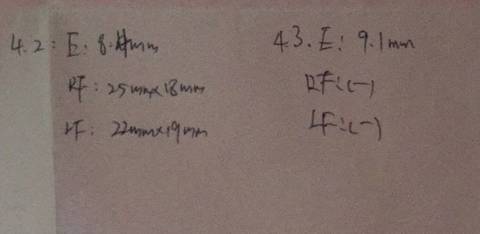 4.2: E: 8.4mm
RF: 25mm×18mm
LF: 22mm×19mm
4.3. E: 9.1mm
RF:(-)
LF:(-)